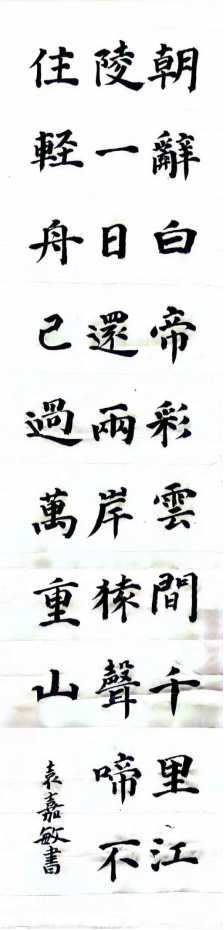 朝辭白帝彩雲間千里江
陵一日還兩岸猿聲啼不
住軽舟已過萬重山
袁嘉敏書